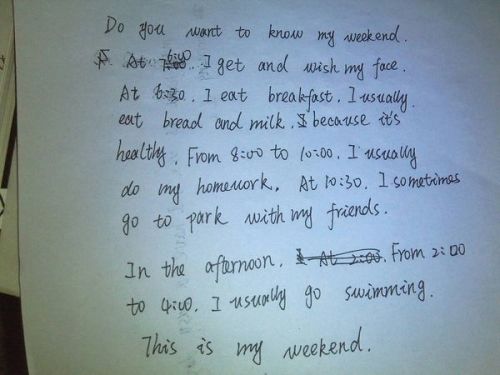 Do you want to know my weekend.
At 6:40 I get and wish my face.
At 6:30. I eat breakfast. I usually
eat bread and milk. because it's
healthy. From 8:00 to 10:00. I usually
do my homework. At 10:30. I sometimes
go to park with my friends.
In the afternoon. I At 2:00. From 2:00
to 4:00. I usually go swimming.
This is my weekend.